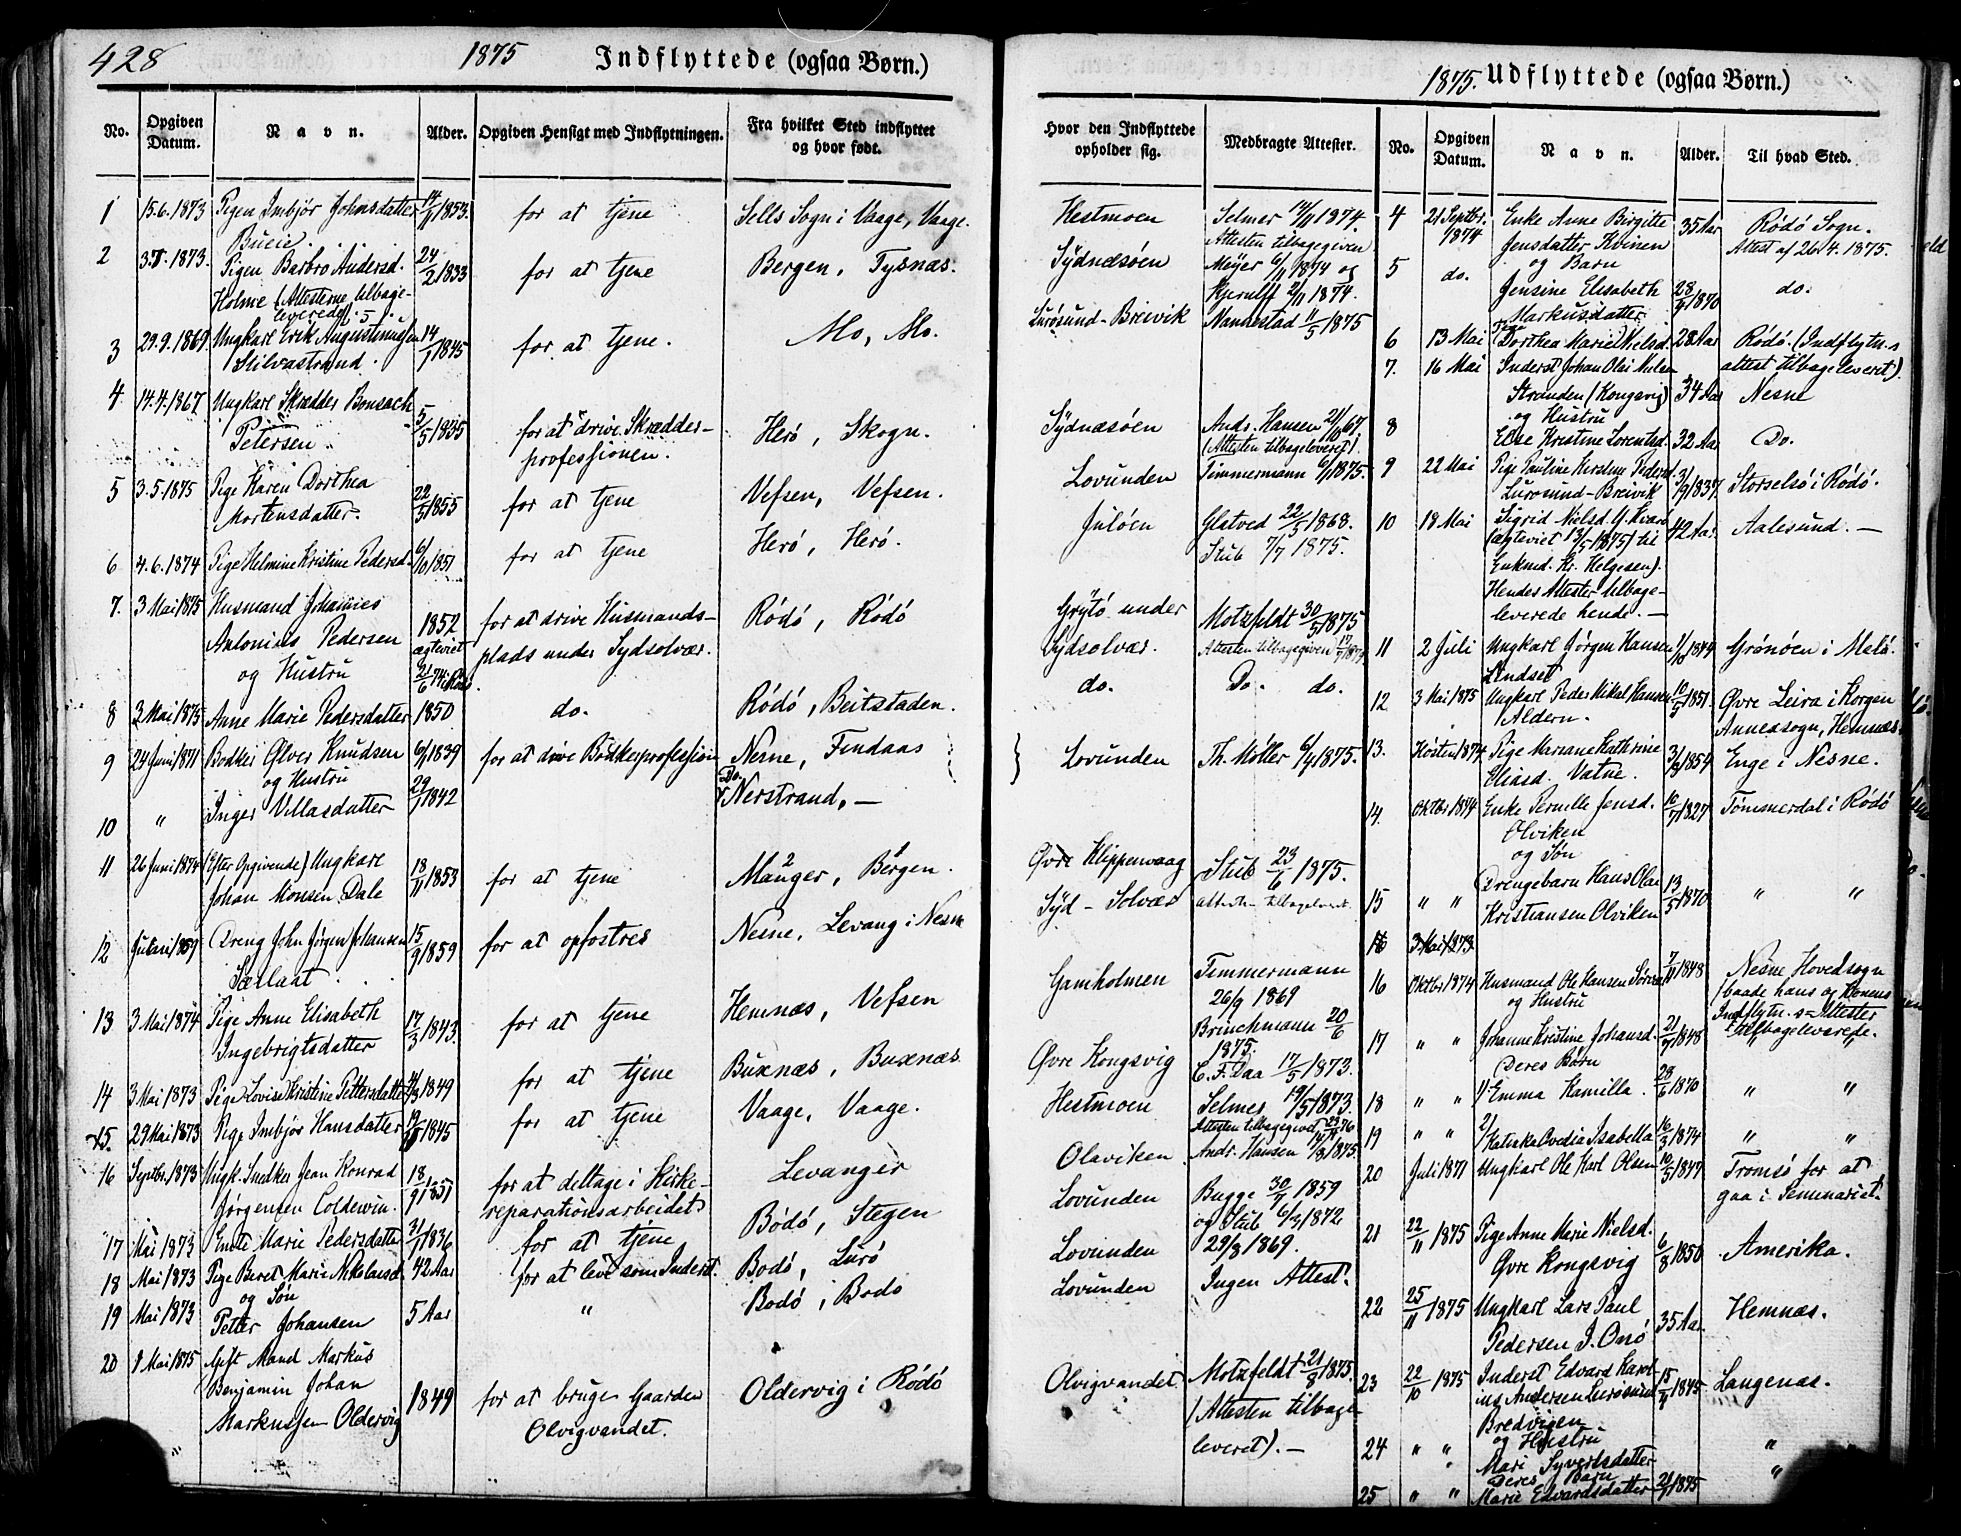 428
1875 Indflyttede (ogsaa Børn.)
No.
Opgiven Datum.
Navn.
Alder.
Opgiven Hensigt med Indflytningen.
Fra hvilket Sted indflyttet og hvor født.
1 15.6.1873 Pigen Imbjør Johnsdatter 14/11 1853. for at tjene Sells Sogn i Vaage, Vaage.
2 1873. Pigen Barbro Andersd. 24/2 1833 for at tjene Bergen, Tysnæs.
Holme (Attesterne tilbage-
leverede
3 29.9.1869 Ungkarl Erik Augustinussen 14/1 1845 for at tjene. Mo, Mo.
Stilvastrand.
4 14.4.1867 Ungkarl Skrædder Bonsach 5/5 1835 for at drive Skrædder- Herø, Skogn.
Petersen. professionen.
5 3.5.1875 Pige Karen Dorthea 22/5 1855 for at tjene Vefsen, Vefsen.
Mortensdatter.
6 4.6.1874 Pige Helmine Kristine Pedersd. 6/10 1851 for at tjene Herø, Herø.
7. 3 Mai 1875 Husmand Johannes 1852 for at drive Husmands- Rødø, Rødø
Antonius Pedersen ægteviet plads under Sydsolvær.
og Hustru
8 3 Mai 1875 Anne Marie Pedersdatter 1850 do. Rødø, Beitstaden.
9 24 Juni 1871 Bødker Ølver Knudsen 6/1 1839 for at drive Bødkerprofession Nesne, Findaas
og Hustru
10 " Inger Villasdatter 29/1 1842 Do. Nerstrand, —
11 26 Juni 1874 (Efter Opgivende) Ungkarl 18/11 1853 for at tjene Manger, Bergen.
Johan Monsen Dale
12 1859 Dreng John Jørgen Johansen 15/9 1859 for at opfostres Nesne, Levang i Nesne
13 3 Mai 1874 Pige Anne Elisabeth 17/3 1843. for at tjene Hemnæs, Vefsen
Ingebrigtsdatter
14 3 Mai 1873 Pige Lovise Kristine Pettersdatter 1849 for at tjene Buxnæs, Buxnæs
15. 29 Mai 1873 Pige Imbjør Hansdatter 1845 for at tjene Vaage, Vaage.
16 Septbr. 1873 Ungk. Snedker Jean Konrad 18/9 1851 for at deltage i Kirke- Levanger
Jørgensen Coldewin. reparationsarbeidet
17 Mai 1873 Enke Marie Pedersdatter 31/1 1836 for at tjene Bodø, Stegen
18 Mai 1873 Pige Beret Marie Nikolaisd. 42 Aar for at leve som Inderst. Bodø, Lurø
og Søn
19 Mai 1873 Petter Johansen 5 Aar " Bodø i Bodø
20 1 Mai 1875 Gift Mand Markus 1849 for at bruge Gaarden Oldervig i Rødø
Benjamin Johan Olvigvandet.
Markussen Oldervig
1875. Udflyttede (ogsaa Børn.)
Hvor den Indflyttede opholder sig.
Medbragte Attester.
No.
Opgiven Datum.
Navn.
Alder.
Til hvad Sted.
Hestmoen Selmer 1874.
Attesten tilbagegiven
Sydnæsøen Meyer 6/11 1874 og
Kjerulff 2/11 1874.
Lurøsund-Breivik Nannestad 11/5 1875
Sydnæsøen Andr. Hansen
(Attesten tilbageleveret).
Lovunden Timmermann 1875.
Juløen Glatved 22/5 1868.
Stub 7/7 1875.
Grytø under Motzfeldt 30/5 1875
Sydsolvær. Attesten tilbagegiven
do. Do. do.
Lovunden Th. Møller 1875.
Øvre Klippenvaag Stub 23/6 1875.
Syd-Solvær
Gamholmen Timmermann
26/9 1869
Brinchmann 20/6
1875.
Øvre Kongsvig C. F. Daa 17/5 1873.
Hestmoen Selmer 19/5 1873.
Attesten tilbagegivet
Olaviken Andr. Hansen 1875.
Lovunden Bugge 30/7 1859
og Stub 6/3 1872
Lovunden 29/8 1869.
Lovunden Ingen Attest.
Olvigvandet. Motzfeldt 1875.
(Attesten tilbage-
leveret). —
4 21 Septbr. 1874 Enke Anne Birgitte 35 Aar Rødø Sogn.
Jensdatter Kvinen Attest af 26.4.1875.
og Barn
5 do. Jensine Elisabeth 28/9 1870 do.
Markusdatter
6 13 Mai Dorthea Marie Nielsd. 28 Aar Rødø. (Indflytn.s
7. 16 Mai Inderst Johan Olai Nilsen attest tilbageleveret).
Stranden (Kongsvig) 34 Aar Nesne
og Hustru
8 Else Kristine Lorentsd. 32 Aar Do.
9 22 Mai Pige Pauline Kirstine Pedersd. 3/9 1837. Storselsø i Rødø.
Lurøsund-Breivik
10 18 Mai Sigrid Nielsd. 42 Aar. Aalesund. —
(ægteviet 13/5 1875) til
Enkmd. Kr. Helgesen).
Hendes Attester tilbage-
leverede hende. —
11 2 Juli Ungkarl Jørgen Hansen 1/10 1844 Grønøen i Melø.
Lindset
12 3 Mai 1875 Ungkarl Peder Mikal Hansen 10/5 1851. Øvre Leira i Korgen
Aldern. Annexsogn, Hemnæs
13. Høsten 1874 Pige Mariane Kathrine 1859 Enge i Nesne.
Eliasd. Vatne.
14. Oktbr 1874 Enke Pernille Jensd. 10/7 1827 Tømmerdal i Rødø
Olviken
og Søn
15 " " Drengebarn Hans Olai 13/5 1870 " "
Kristiansen Olviken
16 3 Mai 1873.
16 Oktbr 1874 Husmand Ole Hansen 7/11 1848 Nesne Hovedsogn
og Hustru (baade hans og Konens
17 " " Johanne Kristine Johansd. 21/7 1848 Indflytn.s-Attester
Deres Børn tilbageleverede.
18 " " 1/ Emma Kamilla. 28/6 1870 " "
19 " " 2/ Katinka Ovedia Isabella 16/3 1874 " "
20 Juli 1871 Ungkarl Ole Karl Olsen 10/5 1847 Tromsø for at
gaa i Seminariet.
21 22/11 1875 Pige Anne Marie Nielsd. 6/8 1850 Amerika.
Øvre Kongsvig
22 25/11 1875 Ungkarl Lars Paul 35 Aar Hemnæs.
Pedersen
23 22/10 1875 Inderst Edvard Karol- 15/4 1845. Langenæs.
ius Andersen Lurøsund
Bredvigen
og Hustru
24 " " Mari Syvertsdatter "
Deres Barn
25 " " Marie Edvardsdatter 1875 "